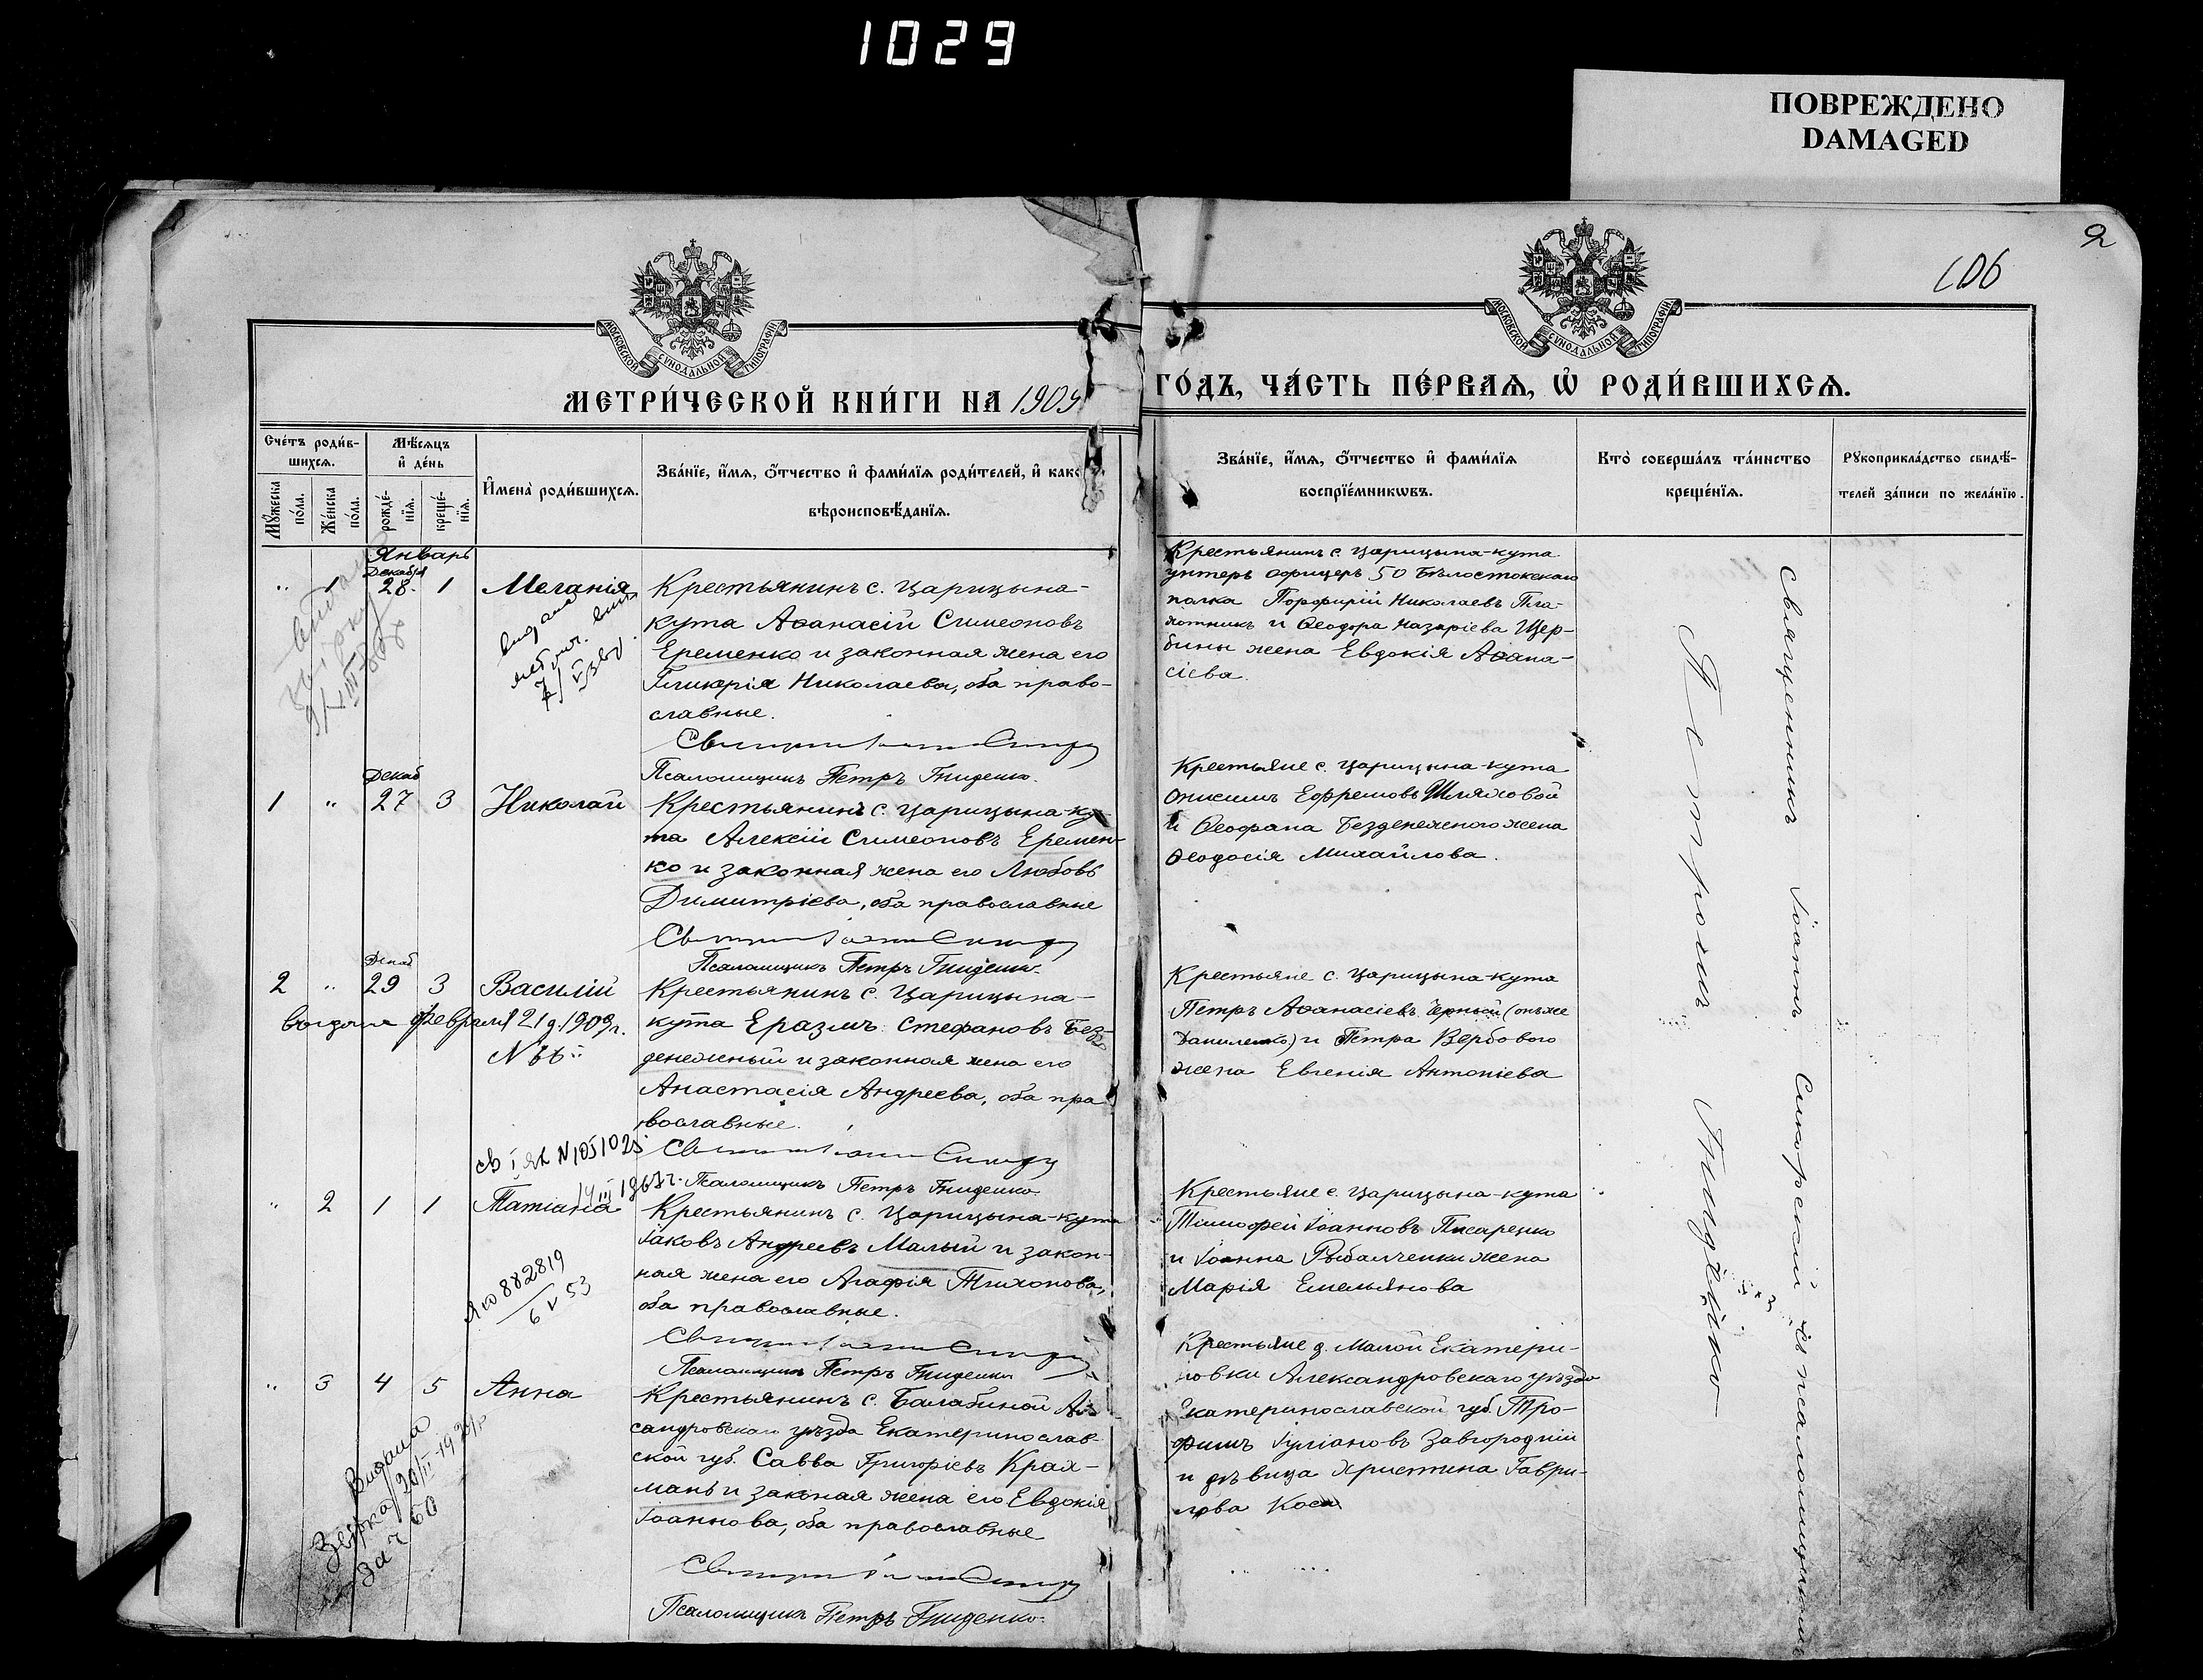 1029
ПОВРЕЖДЕНО
DAMAGED
2
106
МОСКОВСКОЙ СѴНОДАЛЬНОЙ ТИПОГРАФІИ
МОСКОВСКОЙ СѴНОДАЛЬНОЙ ТИПОГРАФІИ
МЕТРИ́ЧЕСКОЙ КНИ́ГИ НА 1909
ГО́ДЪ, ЧА́СТЬ ПЕ́РВАѦ, Ѡ҆ РОДИ́ВШИХСѦ.
Сче́тъ роди́в-
шихсѧ.
Мꙋ́жеска по́ла.
Же́нска по́ла.
Мѣ́сѧцъ
и҆ де́нь
рожде́-
нїѧ.
креще́-
нїѧ.
И҆мена̀ роди́вшихсѧ.
Зва́нїе, и҆́мѧ, о҆́тчество и҆ фами́лїѧ роди́телей, и҆ како
вѣроисповѣ́данїѧ.
Зва́нїе, и҆́мѧ, о҆́тчество и҆ фами́лїѧ
воспрїе́мникѡвъ.
Кто̀ соверша́лъ та́инство
креще́нїѧ.
Рꙋкоприкла́дство свидѣ́-
телей за́писи по жела́нїю.
Январь
Декабря
" 1 28. 1 Меланія
Крестьянинъ с. Царицына-
кута Аѳанасій Симеоновъ
Еременко и законная жена его
Гликерія Николаева, оба право-
славные.
Псаломщикъ Петръ Гниденко.
Крестьянинъ с. Царицына-кута
унтеръ офицеръ 50 Бѣлостокскаго
полка Порфирій Николаевъ Пла-
хотникъ и Ѳеодора Назаріева Щер-
бины жена Евдокія Аѳана-
сіева.
Декаб
1 " 27 3 Николай
Крестьянинъ с. Царицына-ку-
та Алексій Симеоновъ Еремен-
ко и законная жена его Любовь
Димитріева, оба православные
Псаломщикъ Петръ Гниденко.
Крестьяне с. Царицына-кута
Онисимъ Ефремовъ Шляховой
и Ѳеофана Безденежного жена
Ѳеодосія Михайлова.
Декаб
2 " 29 3 Василій
выдана февраля 21 д. 1909 г.
N 66
Крестьянинъ с. Царицына-
кута Еразмъ Стефановъ Без-
денежный и законная жена его
Анастасія Андреева, оба пра
вославные.
Псаломщикъ Петръ Гниденко
Крестьяне с. Царицына-кута
Петръ Аѳанасіевъ Черный (онъ же
Даниленко) и Петра Вербового
жена Евгенія Антоніева
" 2 1 1 Татіана
ЯЮ 882819
6 V 53
Крестьянинъ с. Царицына-кута
Іаковъ Андреевъ Малый и закон-
ная жена его Агафія Тихонова,
оба православные.
Псаломщикъ Петръ Гниденко
Крестьяне с. Царицына-кута
Тимофей Іоанновъ Писаренко
и Іоанна Рыбалченки жена
Марія Емельянова
" 3 4 5 Анна
Видана
Крестьянинъ с. Балабиной Але
сандровскаго уѣзда Екатеринослав-
ской губ. Савва Григоріевъ Крах-
маль и законая жена его Евдокія
Іоаннова, оба православные
Псаломщикъ Петръ Гниденко.
Крестьяне д. Малой Екатери-
новки Александровскаго уѣзда
Екатеринославской губ. Тро-
фимъ Іуліановъ Завгородній
и дѣвица Христина Гаври-
лова Коса
Священникъ Іоаннъ Сикорскій съ псаломщикомъ
Петромъ Гниденко